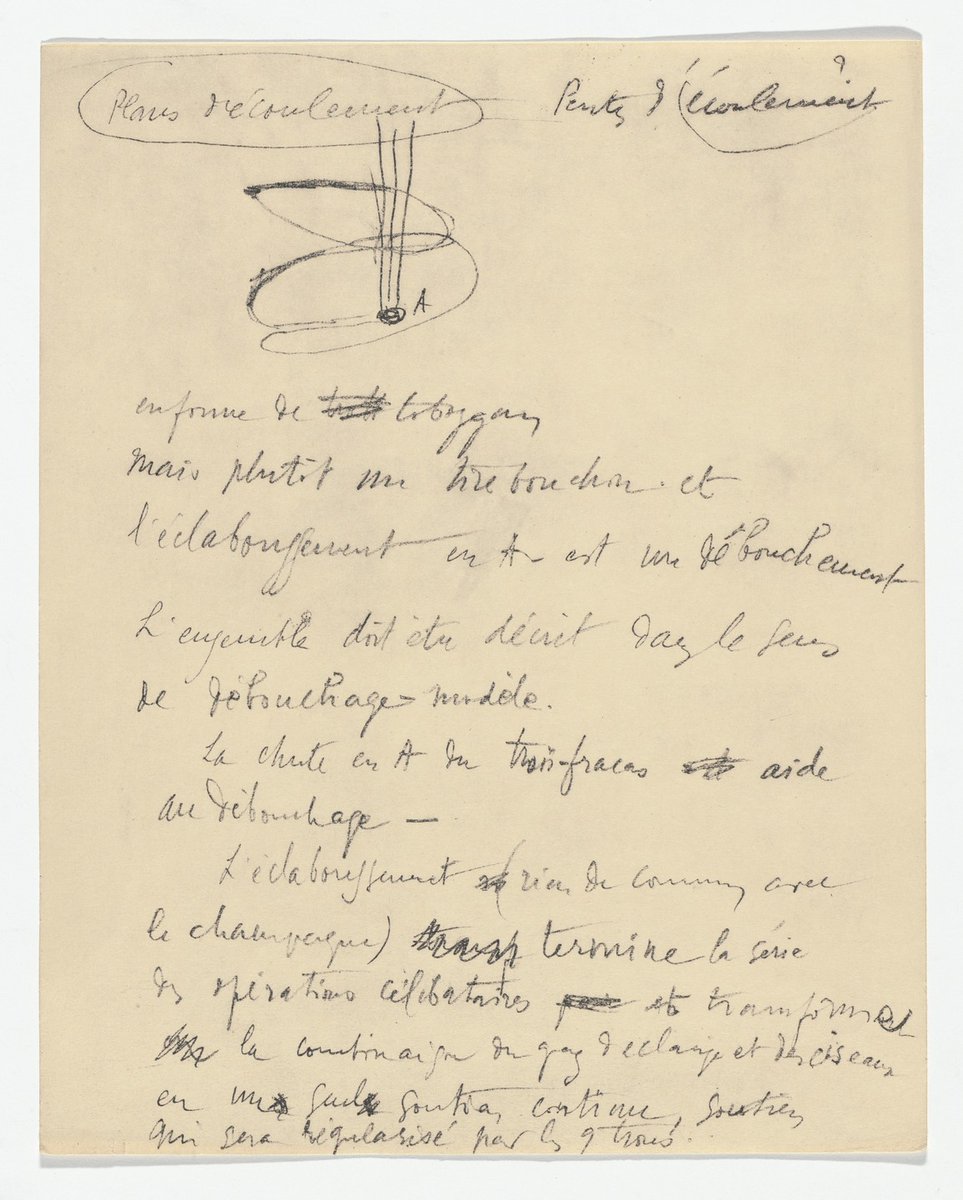 Plans d'écoulement
Pentes d'écoulement
?
A
en forme de toboggan
mais plutôt un tire bouchon. et
l'éclaboussement en A – est un débouchement
L'ensemble doit être décrit dans le sens
de débouchage – modèle.
La chute en A du fracas aide
au débouchage —
L'éclaboussement (rien de commun avec
le champagne) termine la série
des opérations célibataires et transforme
la combinaison du gaz d'éclairage et des ciseaux
en un seul soutien continu, soutien
qui sera régularisé par les 9 trous.